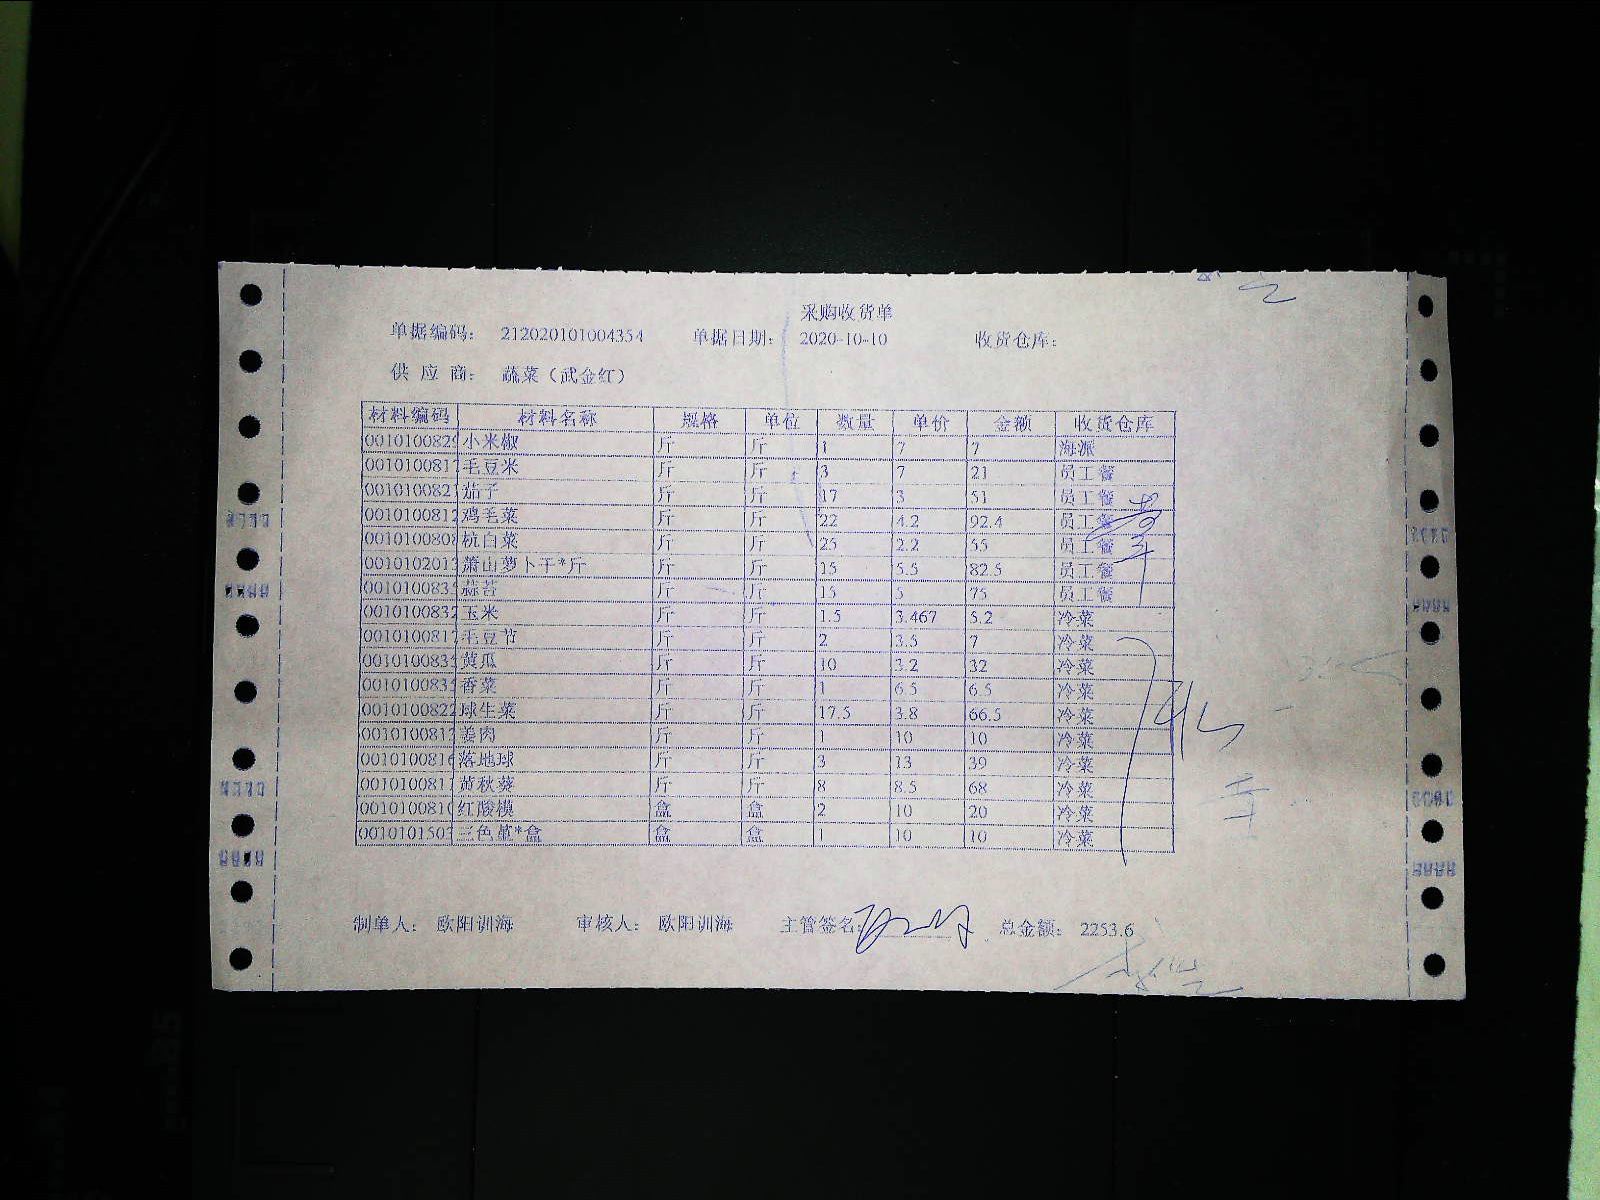 采购收货单
单据编码： 212020101004354 单据日期： 2020-10-10 收货仓库：
供 应 商： 蔬菜（武金红）
材料编码 材料名称 规格 单位 数量 单价 金额 收货仓库
001010082 小米椒 斤 斤 1 7 7 海派
001010081 毛豆米 斤 斤 3 7 21 员工餐
001010082 茄子 斤 斤 17 3 51 员工餐
001010081 鸡毛菜 斤 斤 22 4.2 92.4 员工餐
001010080 杭白菜 斤 斤 25 2.2 55 员工餐
001010201 萧山萝卜干*斤 斤 斤 15 5.5 82.5 员工餐
001010083 蒜苔 斤 斤 15 5 75 员工餐
001010083 玉米 斤 斤 1.5 3.467 5.2 冷菜
001010081 毛豆节 斤 斤 2 3.5 7 冷菜
001010083 黄瓜 斤 斤 10 3.2 32 冷菜
001010083 香菜 斤 斤 1 6.5 6.5 冷菜
001010082 球生菜 斤 斤 17.5 3.8 66.5 冷菜
001010081 姜肉 斤 斤 1 10 10 冷菜
001010081 落地球 斤 斤 3 13 39 冷菜
001010081 黄秋葵 斤 斤 8 8.5 68 冷菜
001010081 红酸模 盒 盒 2 10 20 冷菜
001010150 三色堇*盒 盒 盒 1 10 10 冷菜
制单人： 欧阳训海 审核人： 欧阳训海 主管签名： 总金额： 2253.6